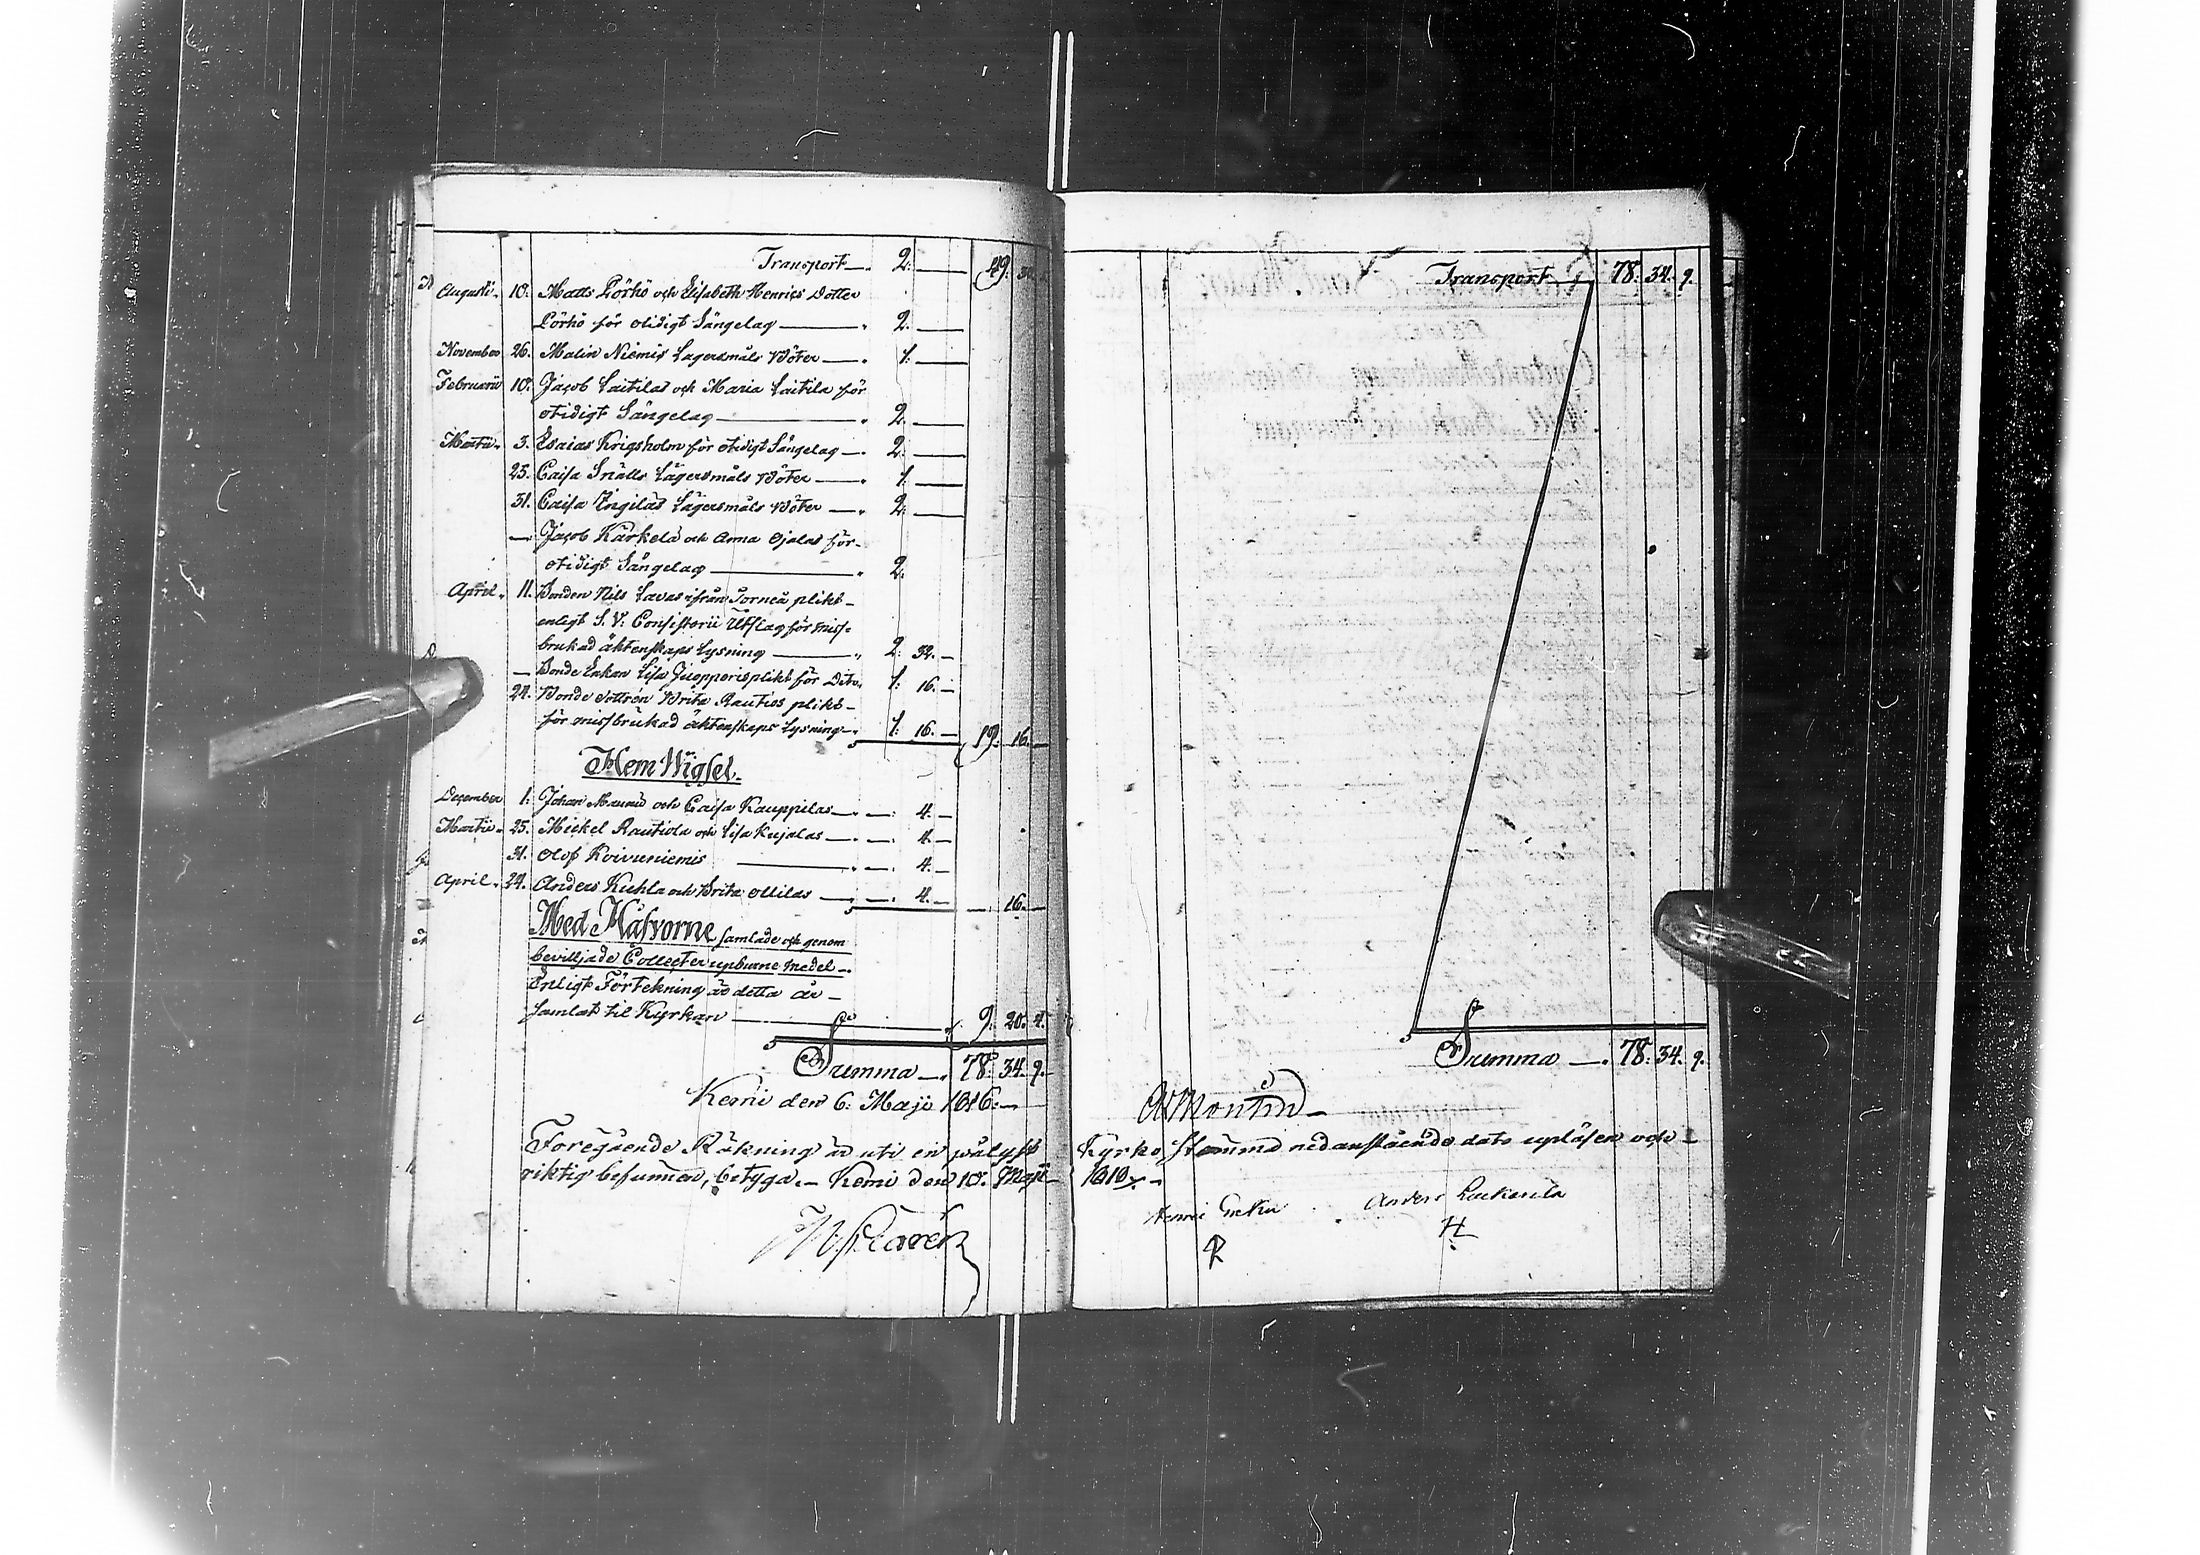 Transport 2. — 49. 30.
Augusti. 10. Matts Pörhö och Elisabeth Henrics Dotter
Pörhö för otidigt Sängelag — 2. —
November 26. Malin Niemis Lägersmåls Böter — 1. —
Februarii 10. Jacob Laitilas och Maria Laitila för
otidigt Sängelag — 2. —
Martii. 3. Esaias Krigsholm för otidigt Sängelag — 2. —
25. Caisa Snälls Lägersmåls Böter — 1. —
31. Caisa Ingilas Lägersmåls Böter — 2. —
— Jacob Kärkelä och Anna Ojalas för-
otidigt Sängelag — 2.
April. 11. Bonden Nils Lavas ifrån Torneå plikt-
enligt S. V. Consistorii Utslag för miss-
brukad äktenskaps Lysning — 2. 32. —
— Bonde Enkan Lisa Juopperis plikt för Dito. 1. 16. —
24. Bonde dottren Brita Rautios plikt-
för missbrukad äktenskaps Lysning — 1. 16. — 19. 16. —
Hem Wigsel.
December 1. Johan Maunu och Caisa Kauppilas — — 4. —
Martii. 25. Mickel Rautiola och Lisa Kujalas — — 4. —
31. Olof Koivuniemis — — 4. —
April. 24. Anders Kuhla och Brita Ollilas — — 4. — — 16. —
Med Håfvorne samlade och genom
bevilljade Collecter upburne medel —
Enligt Förtekning är detta år —
samlat til Kyrkan — 9. 20. 4.
Summa — 78. 34. 9.
Kemi den 6. Maji 1816. —
Foregående Räkning är uti en pålyst
riktig befunnen, betyga. — Kemi den 10. Maji
Transport — 78. 34. 9.
Summa — 78. 34. 9.
Montin
Kyrko stämma nedanstående dato upläsen och —
Anders
H
R